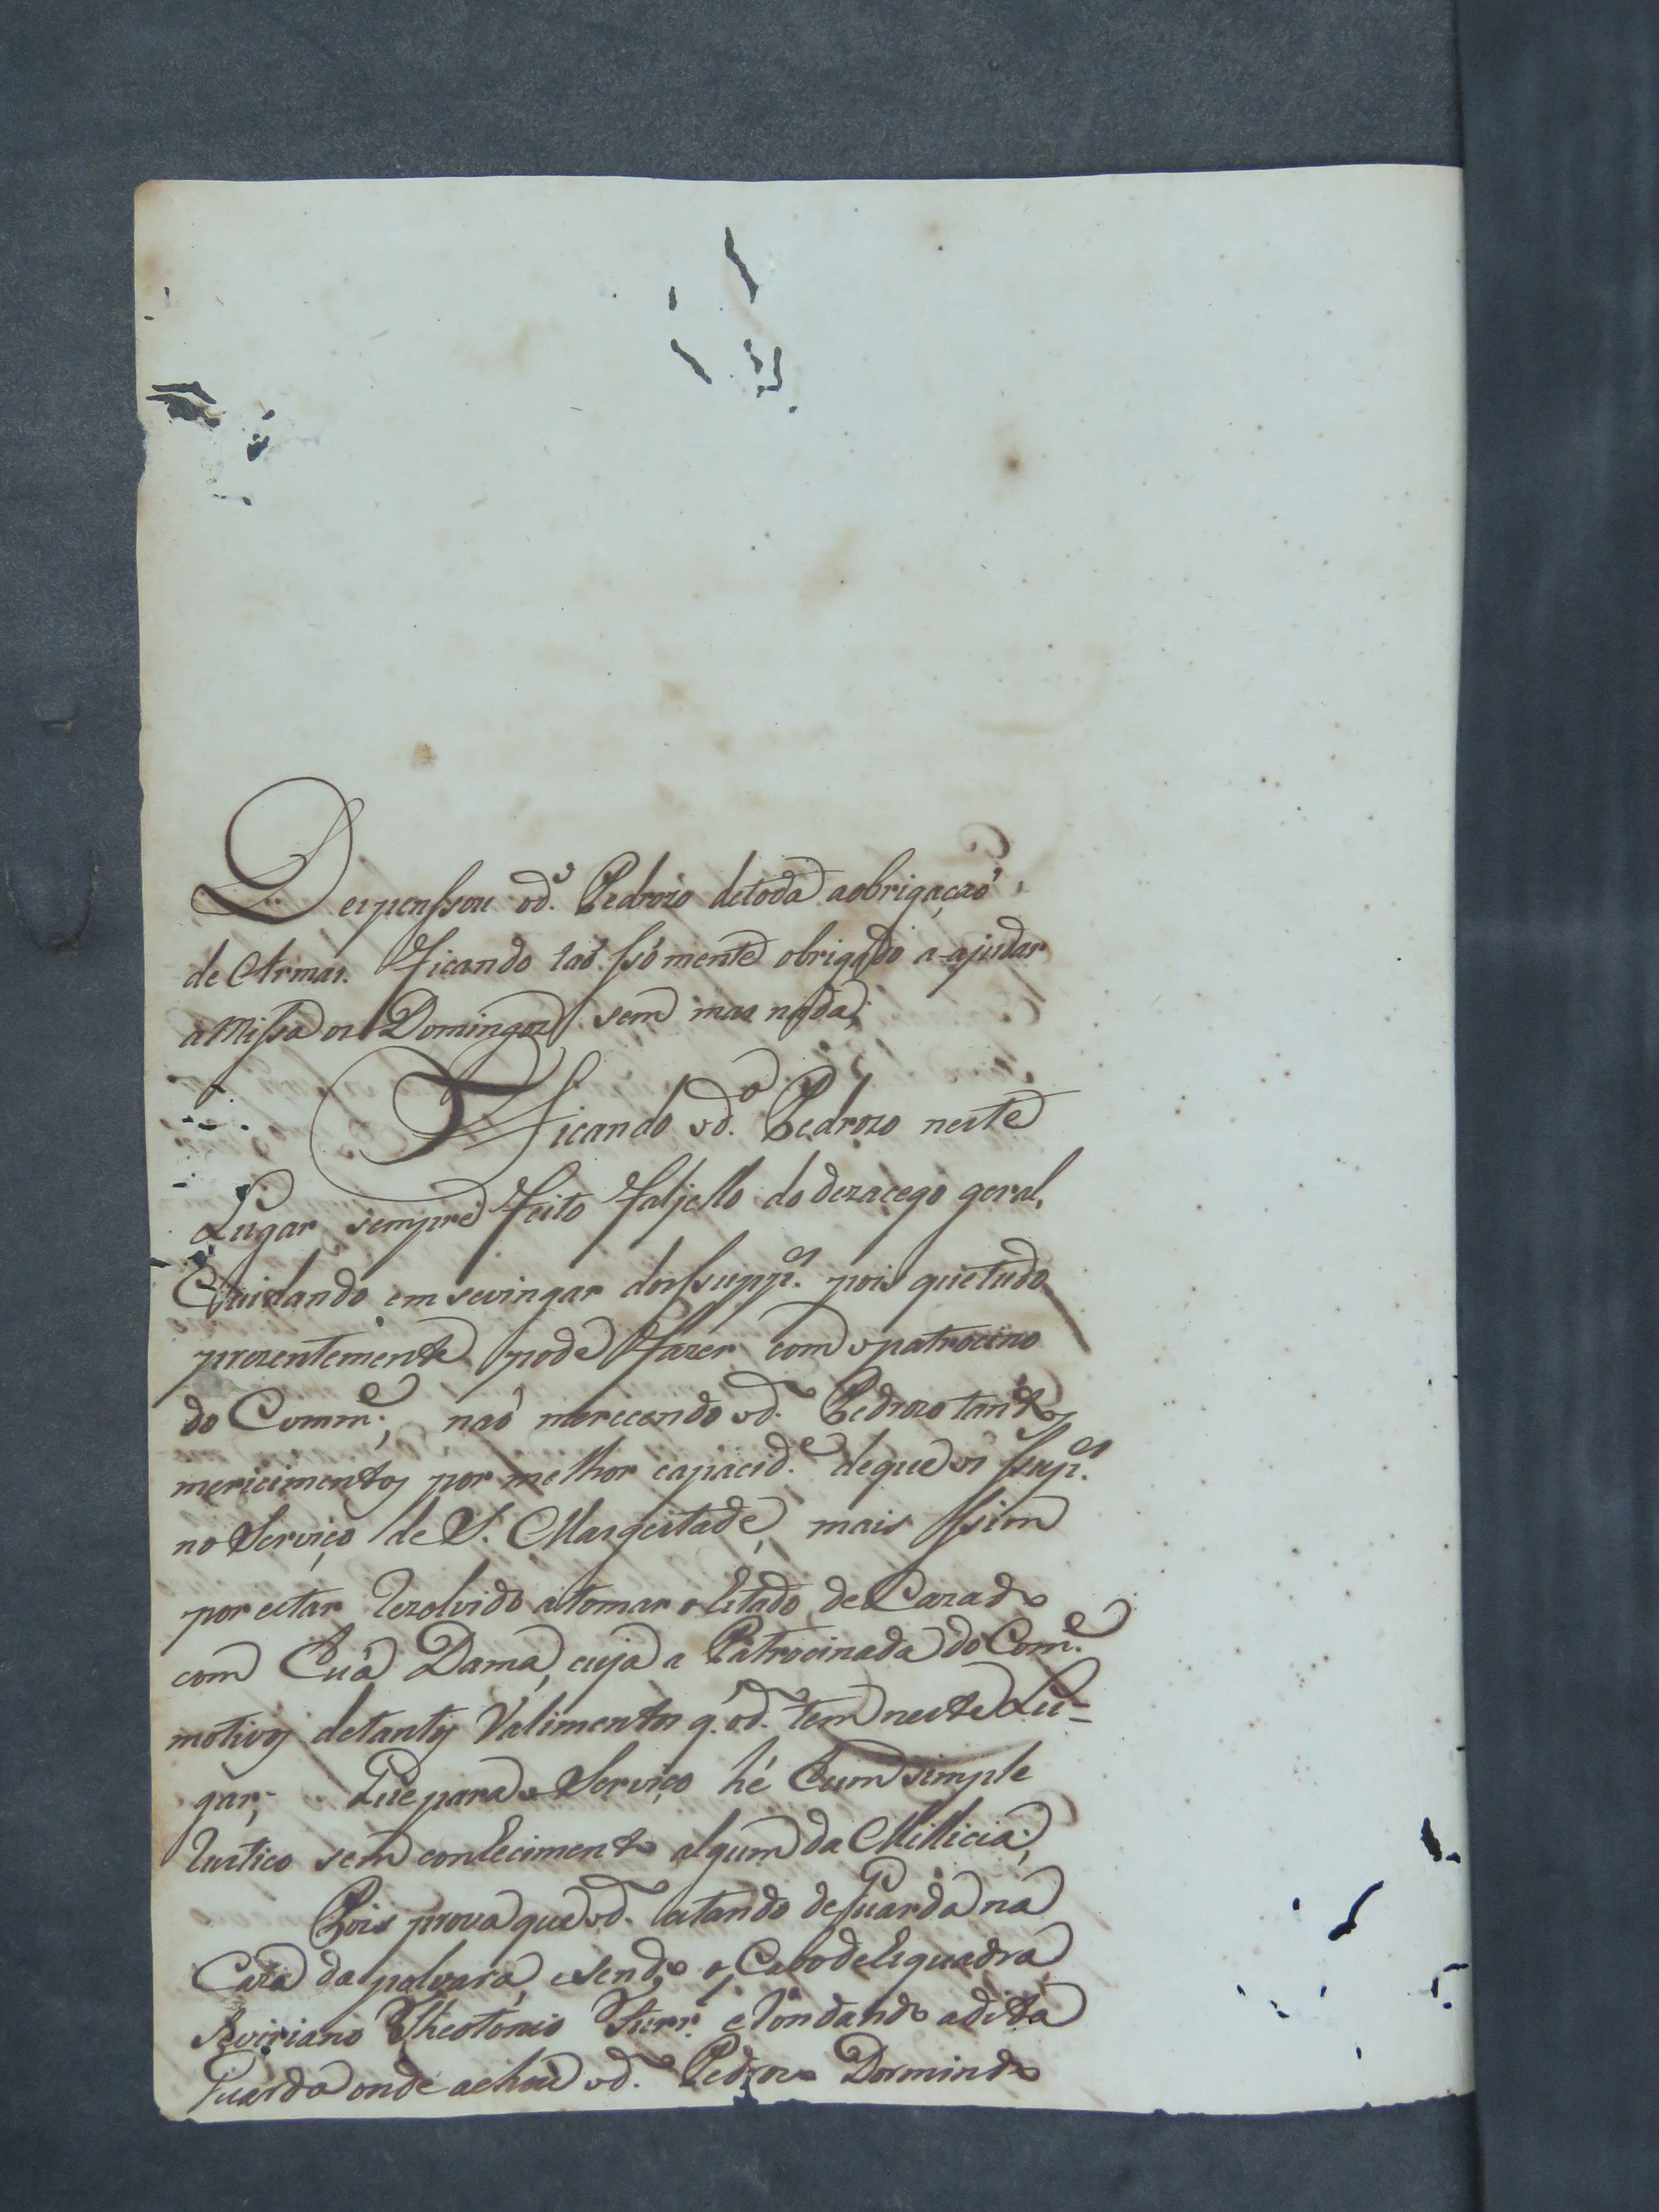 Despenssou od.º Pedrozo detoda aobrigaçaó
de Armas. Ficando taó Ssómente obrigado a-ajudar
a Missa os Domingos sem mas nada;
Ficando od.º Pedrozo neste
Lugar sempre Feito Faljello do dezacego geral,
Cuidando em sevingar dos ssupp.es pois que tudo
prezentemente pode Fazer com opatrocino
do Comm.e; naó merecendo od.º Pedrozo tanto
mericimentos por melhor capacid.e deque os ssup.es
no Serviço de S. Magestade, mais ssim
por estar Rezolvido atomar o Estado de Cazado
com huá Dama, cuja a Patrocinada do Com.e
motivos detantos Valimentos q. od.º tem neste Lu-
gar; Que para o Serviço hé hum simple
Rustico sem conhecimento algum da Millicia;
Pois prova que od.º estando de Guarda na
Caza da polvara, esendo o Cabo de Esquadra
Severiano Theotonio Ferr.ª e Rondando adita
Guarda onde achou od.º Pedrozo Dormindo